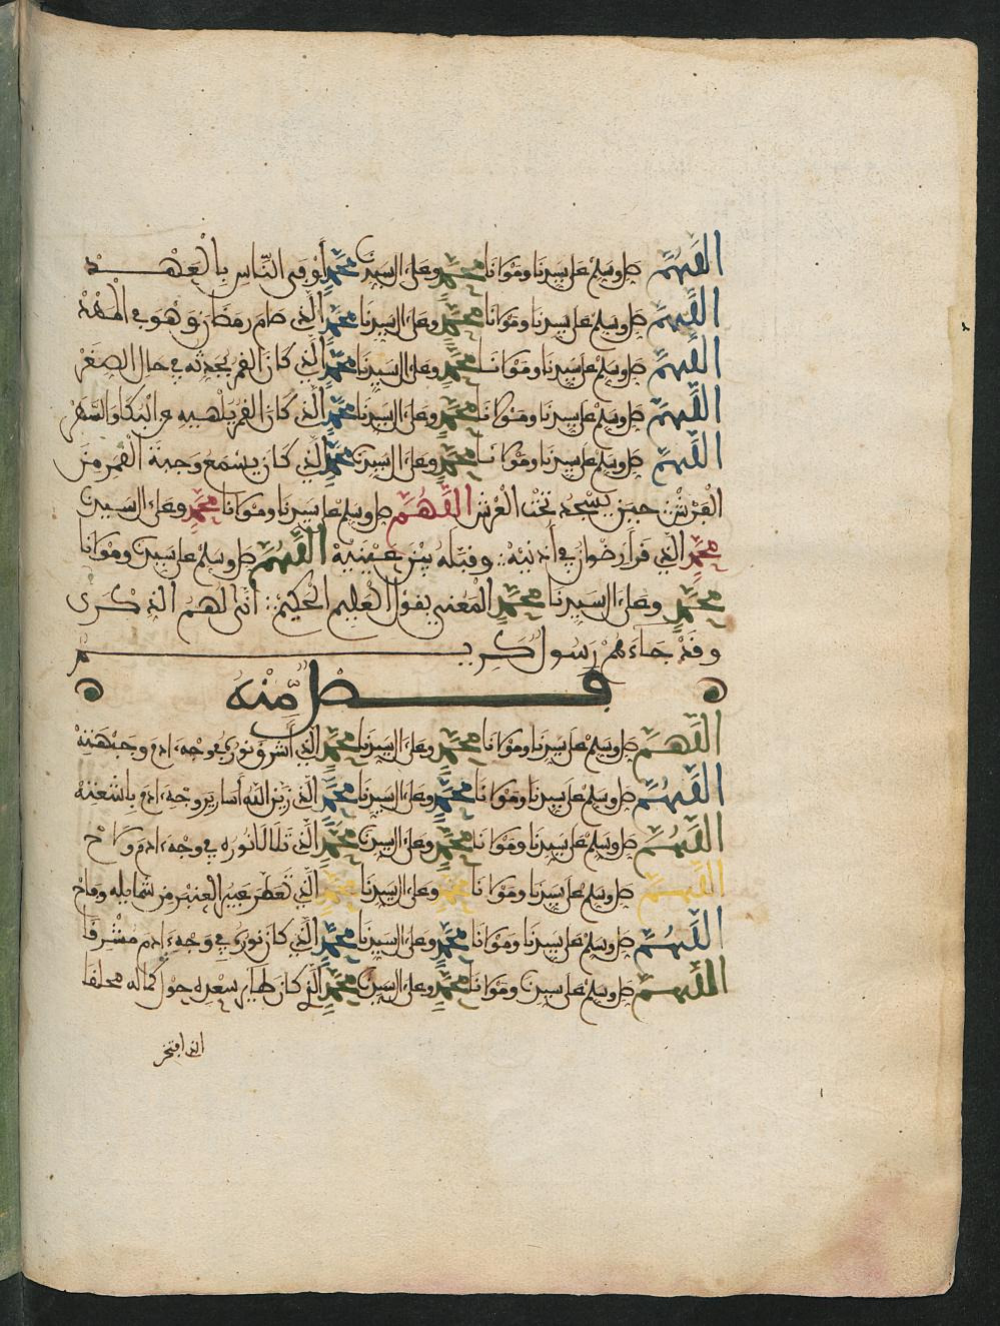 اللهم صل وسلم على سيدنا ومولانا محمد وعلى ال سيدنا محمد أوفى الناس بالعهد
اللهم صل وسلم على سيدنا ومولانا محمد وعلى ال سيدنا محمد الذي صام رمضان وهو في المهد
اللهم صل وسلم على سيدنا ومولانا محمد وعلى ال سيدنا محمد الذي كان القمر يحدثه في حال الصغر
اللهم صل وسلم على سيدنا ومولانا محمد وعلى ال سيدنا محمد الذي كان القمر يلهيه عن البكا والسهر
اللهم صل وسلم على سيدنا ومولانا محمد وعلى ال سيدنا محمد الذي كان يسمع وجبة القمر من
العرش حين يسجد تحت العرش اللهم صل وسلم على سيدنا ومولانا محمد وعلى ال سيدنا
محمد الذي قرأ رضوان في أذنيه وقبله بين عينيه اللهم صل وسلم على سيدنا ومولانا
محمد وعلى ال سيدنا محمد المعني بقول العليم الحكيم أنى لهم الذكرى
وقد جاءهم رسول كريم
فصل منه
اللهم صل وسلم على سيدنا ومولانا محمد وعلى ال سيدنا محمد الذي أشرق نوره في وجه ءادم وجبهته
اللهم صل وسلم على سيدنا ومولانا محمد وعلى ال سيدنا محمد الذي زين الله أسارير وجه ءادم باشعته
اللهم صل وسلم على سيدنا ومولانا محمد وعلى ال سيدنا محمد الذي تلألأ نوره في وجه ءادم ولاح
اللهم صل وسلم على سيدنا ومولانا محمد وعلى ال سيدنا محمد الذي تعطر عبير العنبر من شمايله وفاح
اللهم صل وسلم على سيدنا ومولانا محمد وعلى ال سيدنا محمد الذي كان نوره في وجه ءادم مشرقا
اللهم صل وسلم على سيدنا ومولانا محمد وعلى ال سيدنا محمد الذي كان طاير سعده حول كماله محلقا
الذي افتخر